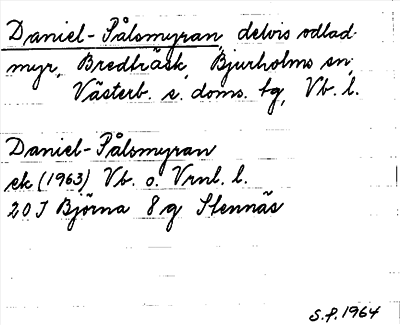 Daniel-Pålsmyran, delvis odlad
myr, Bredträsk, Bjurholms sn,
Västerb. s. doms. tg, Vb. l.
Daniel-Pålsmyran
ek (1963) Vb. o. Vrnl. l.
20 J Björna 8 g Stennäs
S.P. 1964